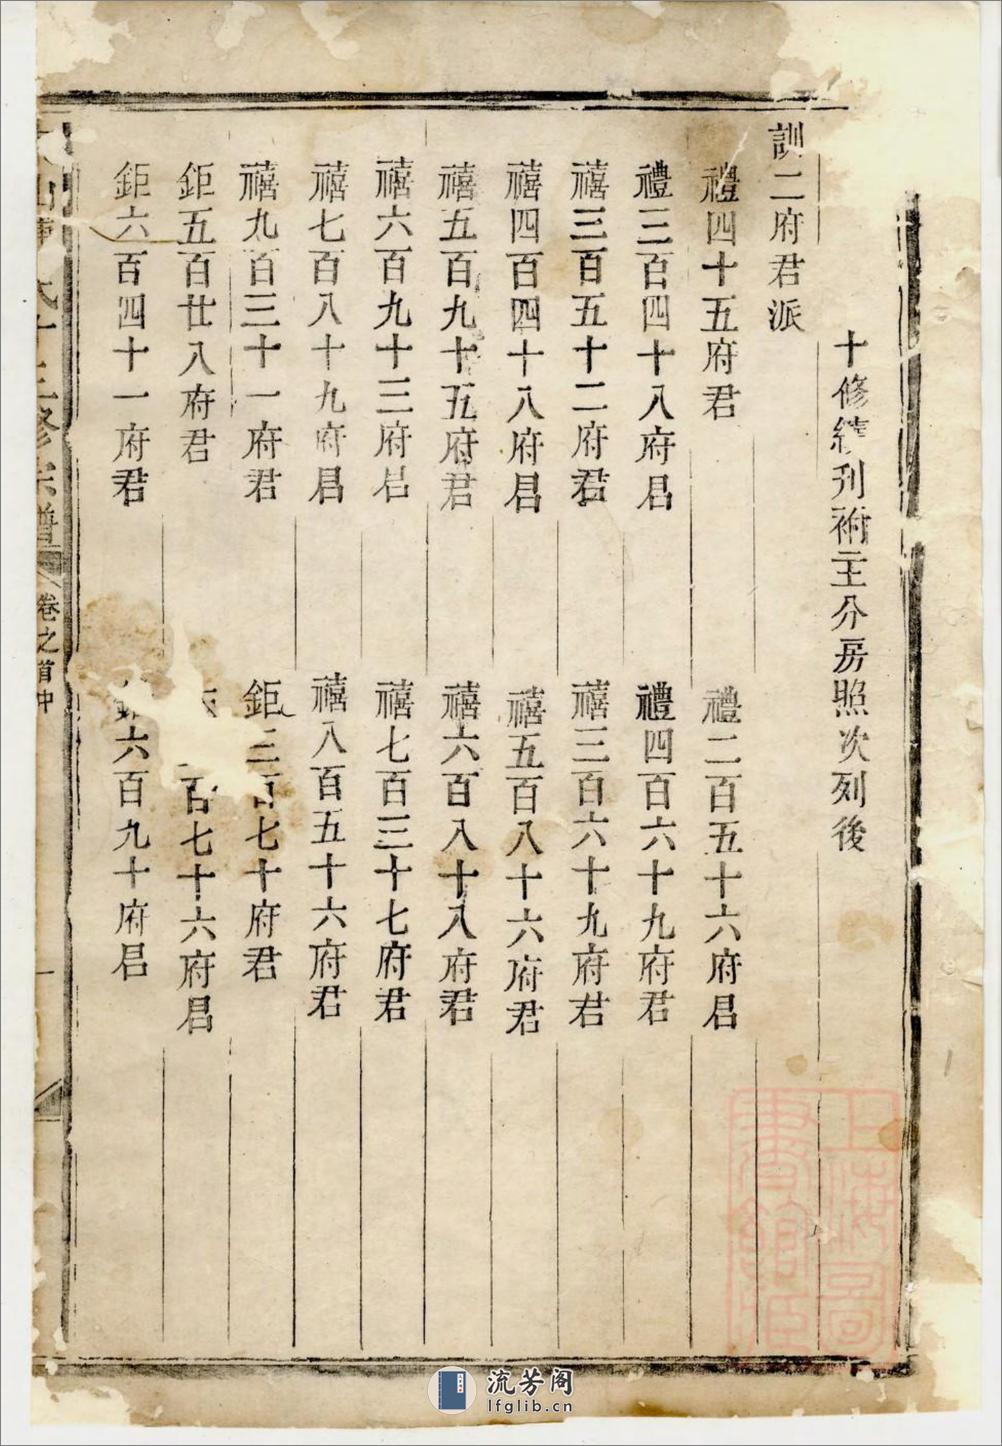 十修續刋祔主分房照次列後
訓二府君派
禮四十五府君
禮二百五十六府君
禮三百四十八府君
禮四百六十九府君
禧三百五十二府君
禧三百六十九府君
禧四百四十八府君
禧五百八十六府君
禧五百九十五府君
禧六百八十八府君
禧六百九十三府君
禧七百三十七府君
禧七百八十九府君
禧八百五十六府君
禧九百三十一府君
鉅三百七十府君
鉅五百廿八府君
百七十六府君
鉅六百四十一府君
六百九十府君
氏十三修宗譜
卷之首中
一
上海圖書館藏
流芳阁
lfglib.cn